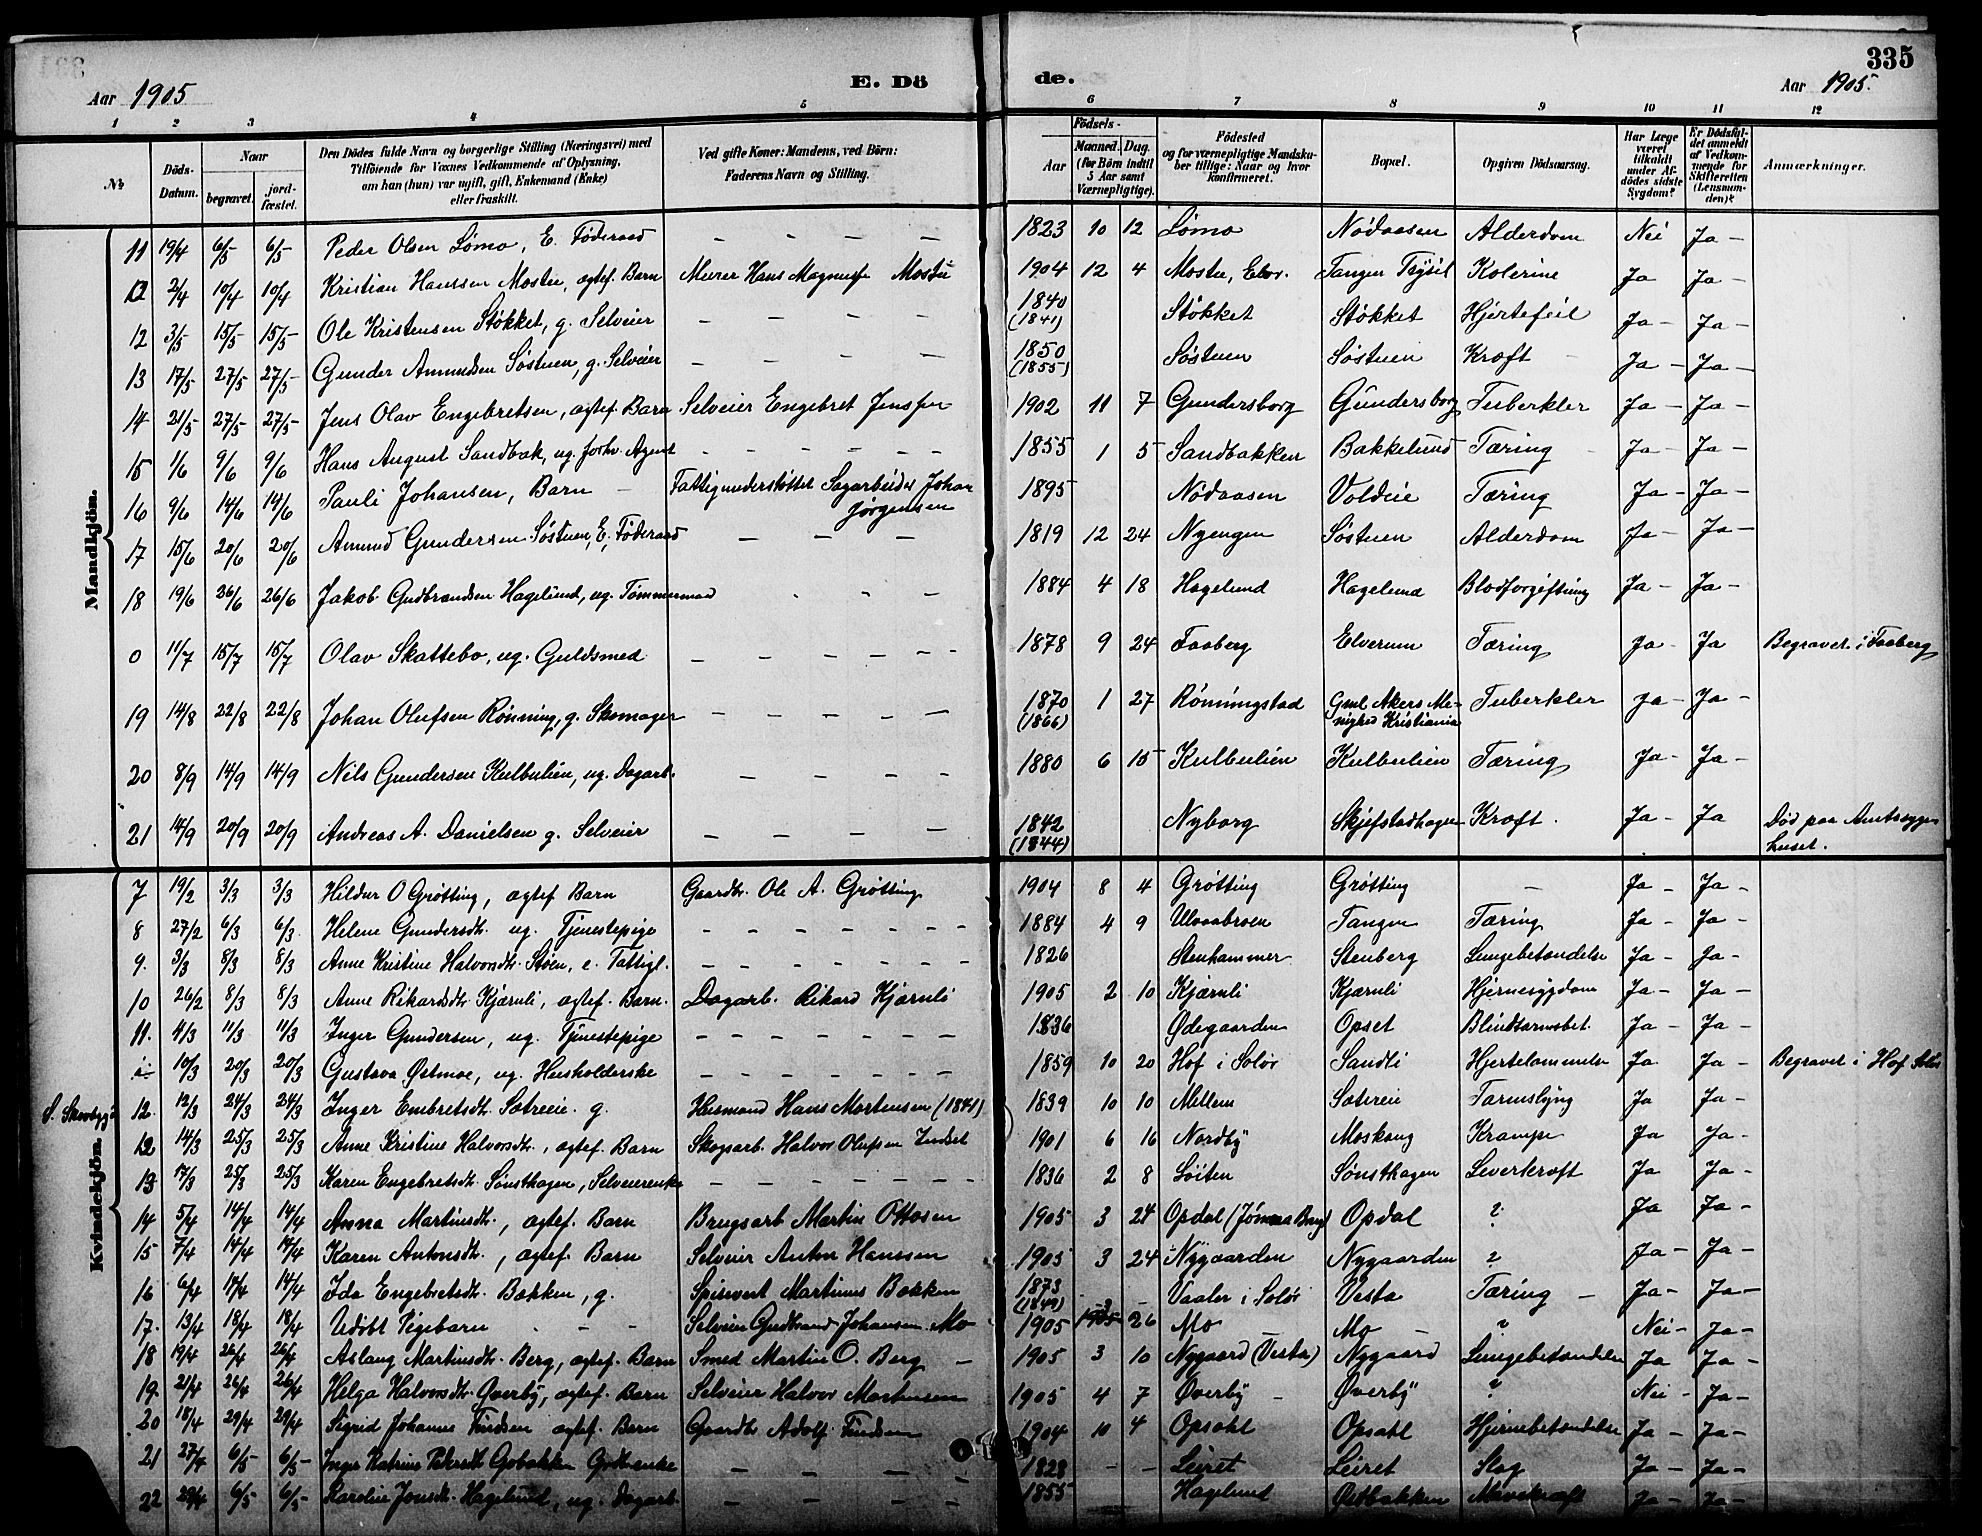 335
Aar 1905
E. Dö
de.
Aar 1905.
1 2 3 4 5 6 7 8 9 10 11 12
No
Döds-Datum.
Naar
begravet.
jord-fæstet.
Den Dödes fulde Navn og borgerlige Stilling (Næringsvei) med
Tilföiende for Voxnes Vedkommende af Oplysning,
om han (hun) var ugift, gift, Enkemand (Enke)
eller fraskilt.
Ved gifte Koner: Mandens, ved Börn:
Faderens Navn og Stilling.
Födsels-
Aar
Maaned. Dag.
(for Börn indtil
5 Aar samt
Værnepligtige).
Födested
og for værnepligtige Mandsku-
ber tillige: Naar og hvor
konfirmeret.
Bopæl.
Opgiven Dödsaarsag.
Har Læge
været
tilkaldt
under Af-
dödes sidste
Sygdom?
Er Dödsfal-
det anmeldt
af Vedkom-
mende for
Skifteretten
(Lensman-
den)?
Anmærkninger.
Mandkjön.
11 19/4 6/5 6/5 Peder Olsen Lömo, E. Föderaad — — — — 1823 10 12 Lömo Nödaasen Alderdom Nei Ja —
2/4 10/4 10/4 Kristian Hanssen Mostu, agtef. Barn Murer Hans Magnus Mostu 1904 12 4 Mostu, Elvr. Tangen Trysil Kolerine Ja Ja —
12 3/5 15/5 15/5 Ole Kristensen Stökket, g. Selveier — — — — 1840 (1841) Stökket Stökket Hjertefeil Ja — Ja —
13 17/5 27/5 27/5 Gunder Amundsen Söstuen, g. Selveier — — — — 1850 (1855) Söstuen Söstuen Kræft Ja — Ja —
14 21/5 27/5 27/5 Jens Olav Engebretsen, agtef. Barn Selveier Engebret Jensen 1902 11 7 Gundersborg Gundersborg Tuberkler Ja — Ja —
15 1/6 9/6 9/6 Hans August Sandbak, ug. forhv. Agent — — — — 1855 1 5 Sandbakken Bakkelund Tæring Ja — Ja —
16 9/6 14/6 14/6 Pauli Johansen, Barn — Fattigunderstöttet Sagarbeider Johan
Jörgensen 1895 Nödaasen Voldeie Tæring Ja — Ja —
17 15/6 20/6 20/6 Amund Gundersen Söstuen, E. Föderaad — — — 1819 12 24 Nyengen Söstuen Alderdom Ja — Ja —
18 19/6 26/6 26/6 Jakob Gudbrandsen Hagelund, ug. Tömmermand 1884 4 18 Hagelund Hagelund Blodforgiftning Ja — Ja —
0 11/7 15/7 15/7 Olav Skattebo, ug. Guldsmed — — — — 1878 9 24 Faaberg Elverum Tæring Ja — Ja Begravet i Faaberg
19 14/8 22/8 22/8 Johan Olufsen Rönning, g. Skomager — — — — 1870 (1866) 1 27 Rönningstad Gml. Akers Me-
nighed Kristiania Tuberkler Ja — Ja —
20 8/9 14/9 14/9 Nils Gundersen Kulbulien, ug. Dagarb. — — — — 1880 6 15 Kulbulien Kulbulien Tæring Ja — Ja —
21 14/9 20/9 20/9 Andreas A. Danielsen g. Selveier — — — — 1842 (1844) Nyborg Skjefstadhagen Kræft Ja — Ja Död paa Amtssyge-
huset.
Kvindekjön.
7 19/2 3/3 3/3 Hildur O Grötting, agtef Barn Gaardbr. Ole A. Grötting 1904 8 4 Grötting Grötting — Ja — Ja —
8 27/2 6/3 6/3 Helene Gundersdtr. ug. Tjenestepige — — — — 1884 4 9 Ulvaabroen Tangen Tæring Ja — Ja —
9. 3/3 8/3 8/3 Anne Kristine Halvorsdtr. Stöen, e. Fattigl. — — — — 1826 Stenhammer Stenberg Lungebetændelse Ja — Ja —
10 26/2 8/3 8/3 Anne Rikardsdtr Kjærnli, agtef. Barn. Dagarb. Rikard Kjærnli 1905 2 10 Kjærnli Kjærnli Hjernesygdom Ja — Ja —
11. 4/3 11/3 11/3 Inger Gundersen, ug. Tjenestepige — — — — 1836 Ødegaarden Opset Blindtarmsbet. Ja — Ja —
10/3 20/3 20/3 Gustava Østmoe, ug. Husholderske — — — — 1859 10 20 Hof i Solör Sandli Hjertelammelse Ja Ja — Begravet i Hof Solör
S. Skovbygd 12. 12/3 24/3 24/3 Inger Embretsdtr. Sætreeie. g. Husmand Hans Mortensen (1841) 1839 10 10 Mellem Sætreeie Tarmslyng Ja Ja —
14/3 25/3 25/3 Anne Kristine Halvorsdtr., agtef. Barn Skogarb. Halvor Olufsen Indset 1901 6 16 Nordby Moskaug Krampe Ja Ja —
13 17/3 25/3 25/3 Karen Engebretsdtr. Sönsthagen, Selveierenke — — — — 1836 2 8 Löiten Sönsthagen Leverkræft Ja Ja —
14 5/4 14/4 14/4 Anna Martinsdtr., agtef. Barn Brugsarb Martin Ottosen 1905 3 24 Opdal (Jömna Brug) Opdal ? Ja Ja —
15 7/4 14/4 14/4 Karen Antonsdtr., agtef. Barn Selveier Anton Hanssen 1905 3 24 Nygaarden Nygaarden ? Ja — Ja —
16 6/4 14/4 14/4 Ida Engebretsdtr. Bakken, g. Spisevert Martinus Bakken 1873 (1849) — — Vaaler i Solör Vesta Tæring — Ja — Ja —
17. 13/4 18/4 18/4 Udöbt Pigebarn — — Selveier Gudbrand Johansen Mo 1905 3 26 Mo Mo — ? Nei — Ja —
18 19/4 26/4 26/4 Aslaug Martinsdtr. Berg, agtef. Barn Smed Martin O. Berg — 1905 3 10 Nygaard (Vesta) Nygaard Lungebetændelse Ja Ja —
19. 21/4 26/4 26/4 Helga Halvorsdtr Øverby, agtef. Barn Selveier Halvor Mortensen 1905 4 7 Øverby — Øverby ? Nei — Ja —
20 18/4 29/4 29/4 Sigrid Johanne Findsen agtef. Barn Gaardbr Adolf Findsen 1904 10 4 Opsahl Opsahl Hjernebetændelse Ja — Ja —
21 27/4 6/5 6/5 Inger Katrine Pedersdtr Gobakken Grdbr.enke — — — — 1828 — — Leiret Leiret Slag Ja — Ja —
22 29/4 6/5 6/5 Karoline Jonsdtr. Hagelund, ug. Dagarb. — — — — 1855 Hagelund Østbakken Mavekræft Ja — Ja —